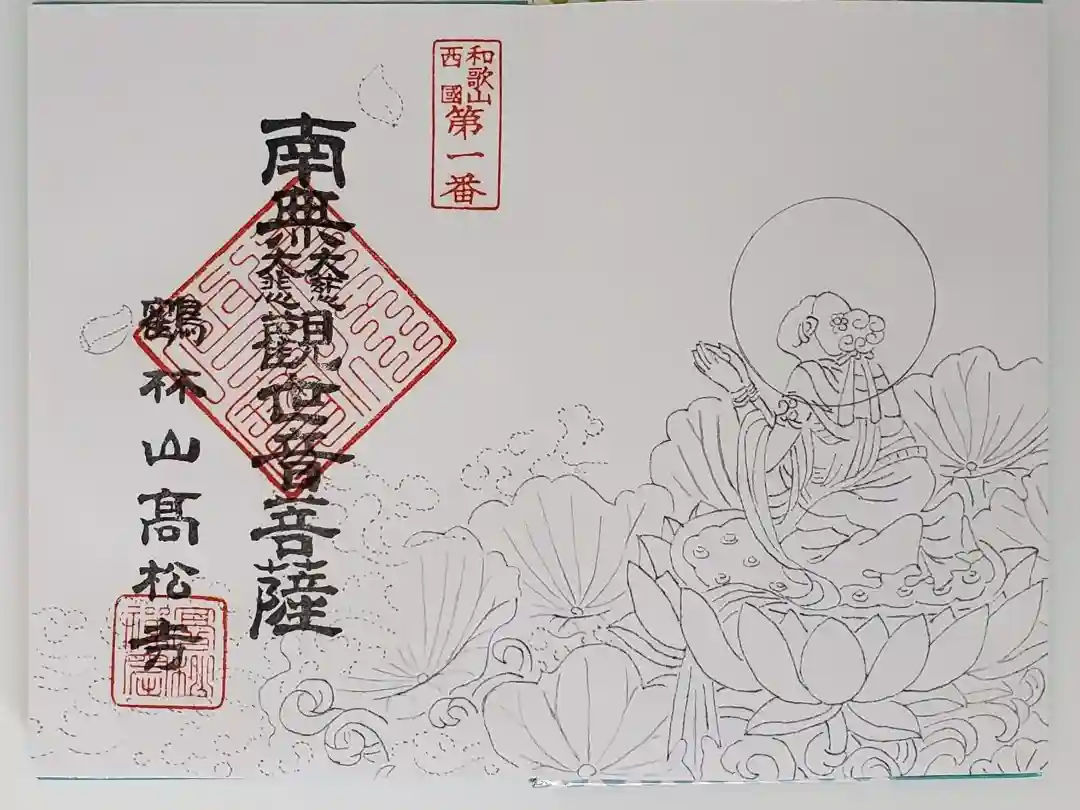 和歌山
西國
第一番
南無大悲大悲觀世音菩薩
鶴林山高松寺